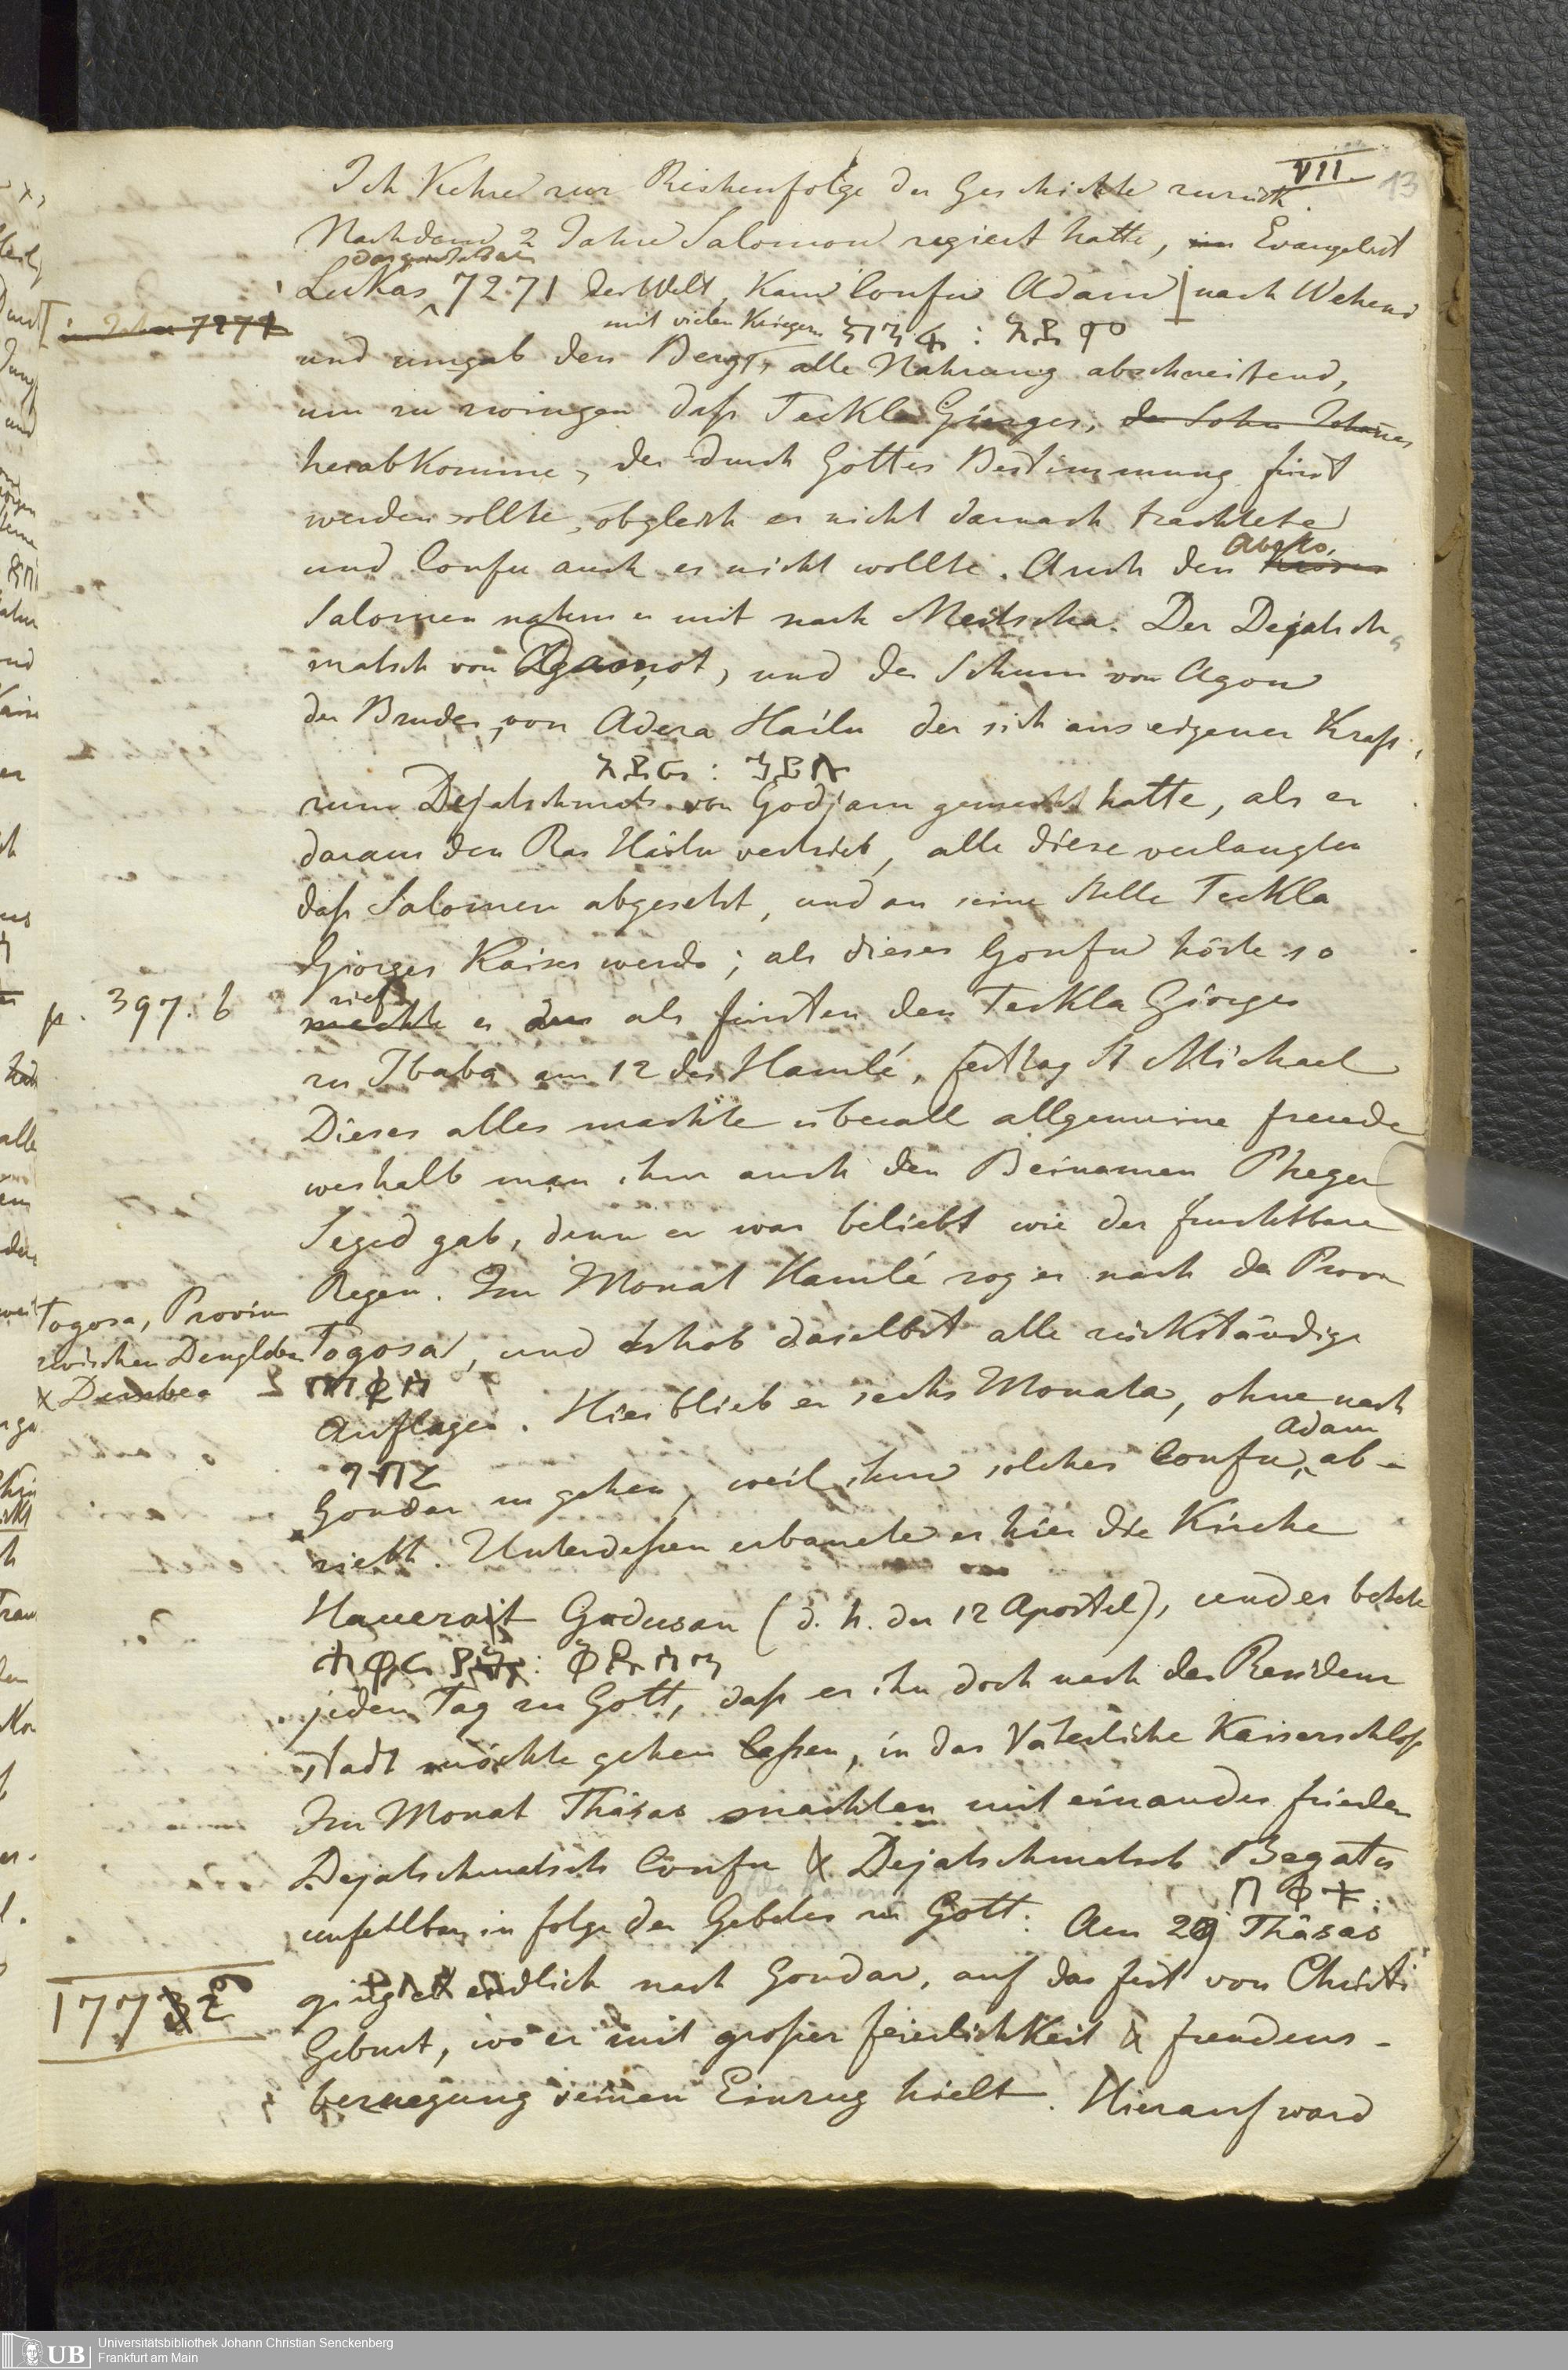 VII.
13
Ich Kehre zur Reihenfolge der Geschichte zurück.
Nachdem 2 Jahre Salomon regiert hatte, im Evangelist
Lukas, 7271 der Welt, Kam Confu Adam nach Wehend
im Jahr 7271
mit vielen Kriegern
und umgab den Berg, alle Nahrung abschneitend,
um zu zwingen daß Teckla Giorges, der Sohn Johannes
herabKomme, der durch Gottes Bestimmung fürst
werden sollte, obgleich er nicht darnach trachtete
und Confu auch es nicht wollte. Auch den
Salomon nahm er mit nach Meitscha. Der Dejatsch
matsch von Agamot, und der Schum von Agow
der Bruder von Adera Hailu der sich aus eigener Kraft
zum Dejatschmatsch von Godjam gemacht hatte, als er
daraus den Ras Hailu vertrieb, alle diese verlangten
daß Salomon abgesetzt, und an seine Stelle Teckla
Giorges Kaiser werde; als dieses Gonfu hörte so
p. 397. b
rief
machte er als fürsten den Teckla Giorges
zu Ibaba am 12 des Hamlé, festtag St Michael
Dieses alles machte überall allgemeine freude
weshalb man ihm auch den Beinamen Pheger
Seged gab, denn er war beliebt wie der fruchtbare
Regen. Im Monat Hamlé zog er nach der Provn
Togosa, Provinz
zwischen Dengleber
& Dembea
Togosa, und erhob daselbst alle rückständige
Auflagen. Hier blieb er sechs Monate, ohne nach
Adam
Gondar zu gehen, weil ihm solches Confu ab-
rieht. Unterdeßen erbauete er hier die Kirche
Haueroit Godusan (d. h. der 12 Apostel), und er betete
jeden Tag zu Gott, daß er ihn doch nach der Residenz
stadt möchte gehen laßen, in das Väterliche Kaiserschloß
Im Monat Thäsas machten mit einander frieden
Dejatschmatsch Confu & Dejatschmatsch Begatu
በቃቱ
unfehlbar in folge der Gebetes zu Gott. Am 29 Thäsas
1779
ging er endlich nach Gondar, auf das fest von Christi
Geburt, wo er mit großer feierlichKeit & freudens-
bezeugung seinen Einzug hielt. Hierauf ward
UB
Universitätsbibliothek Johann Christian Senckenberg
Frankfurt am Main